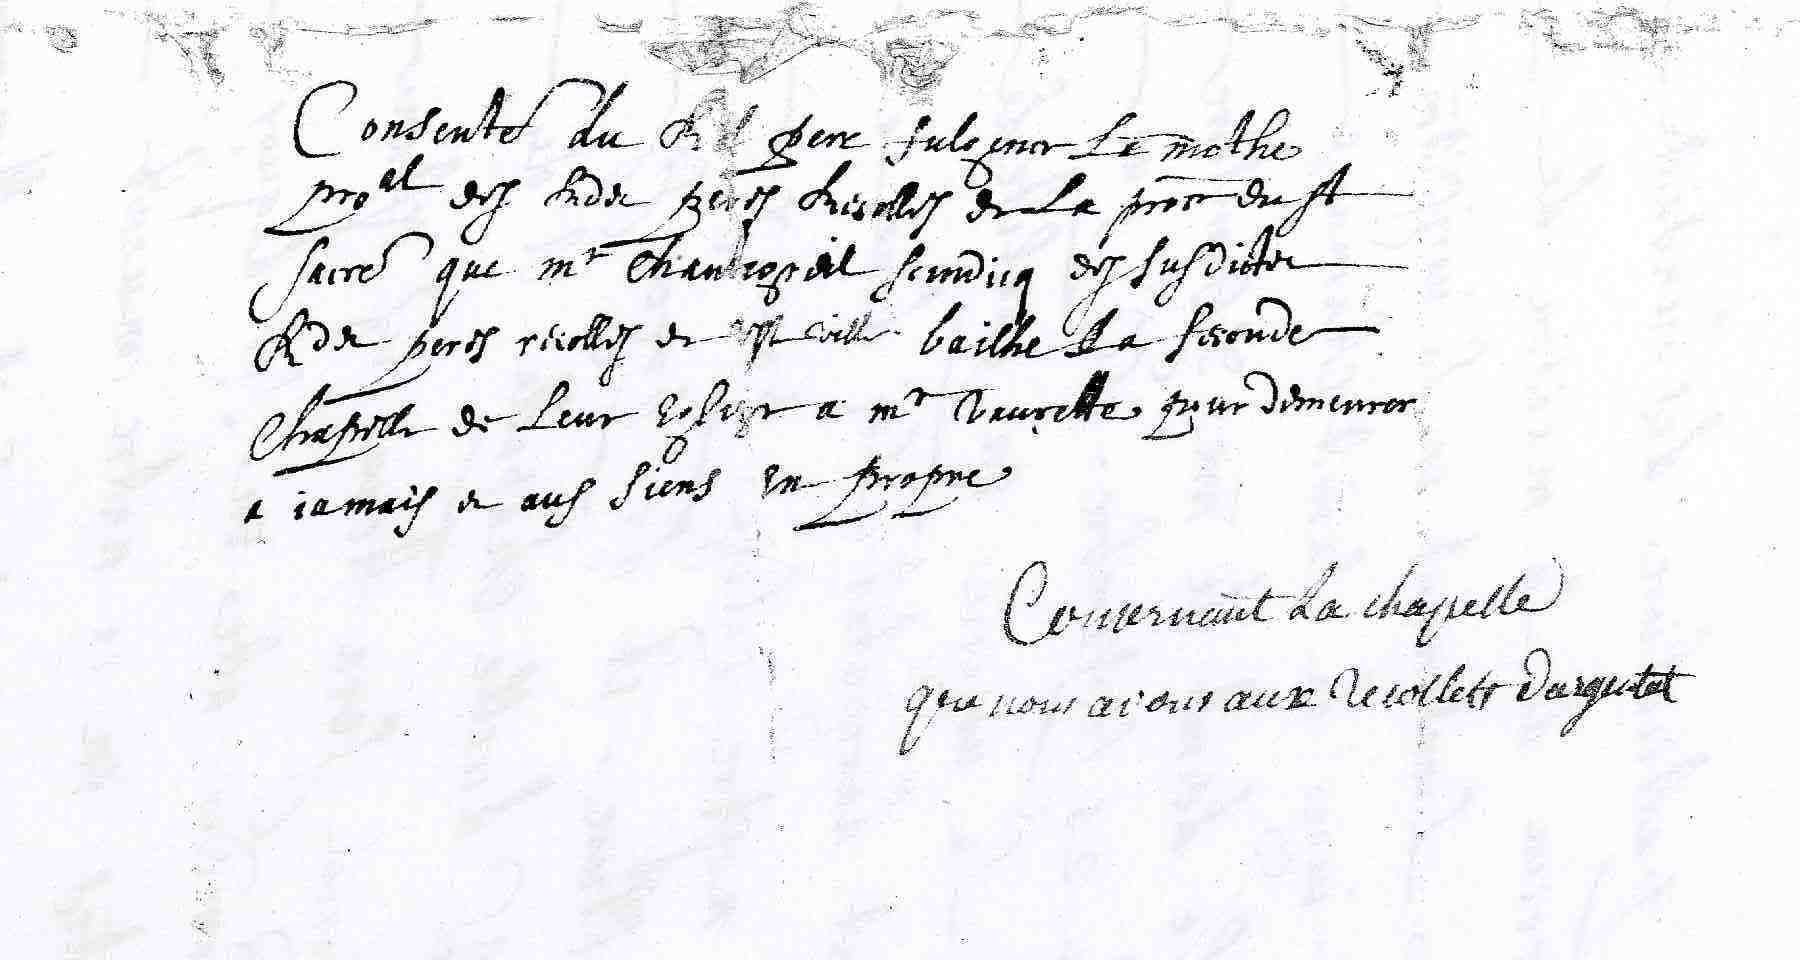 Consente du Rd pere fulgence La mothe
proal des Rdes peres Recolles de La proce du st
sacre que mr scindicq des susdictes
Rdes peres recolles de ville bailhe La seconde
Chapelle de Leur Eglize a mr Vaurette pour demeurer
a iamais et aus siens En propre
Concernant La chapelle
que nous avons aux Recollets Dargentat